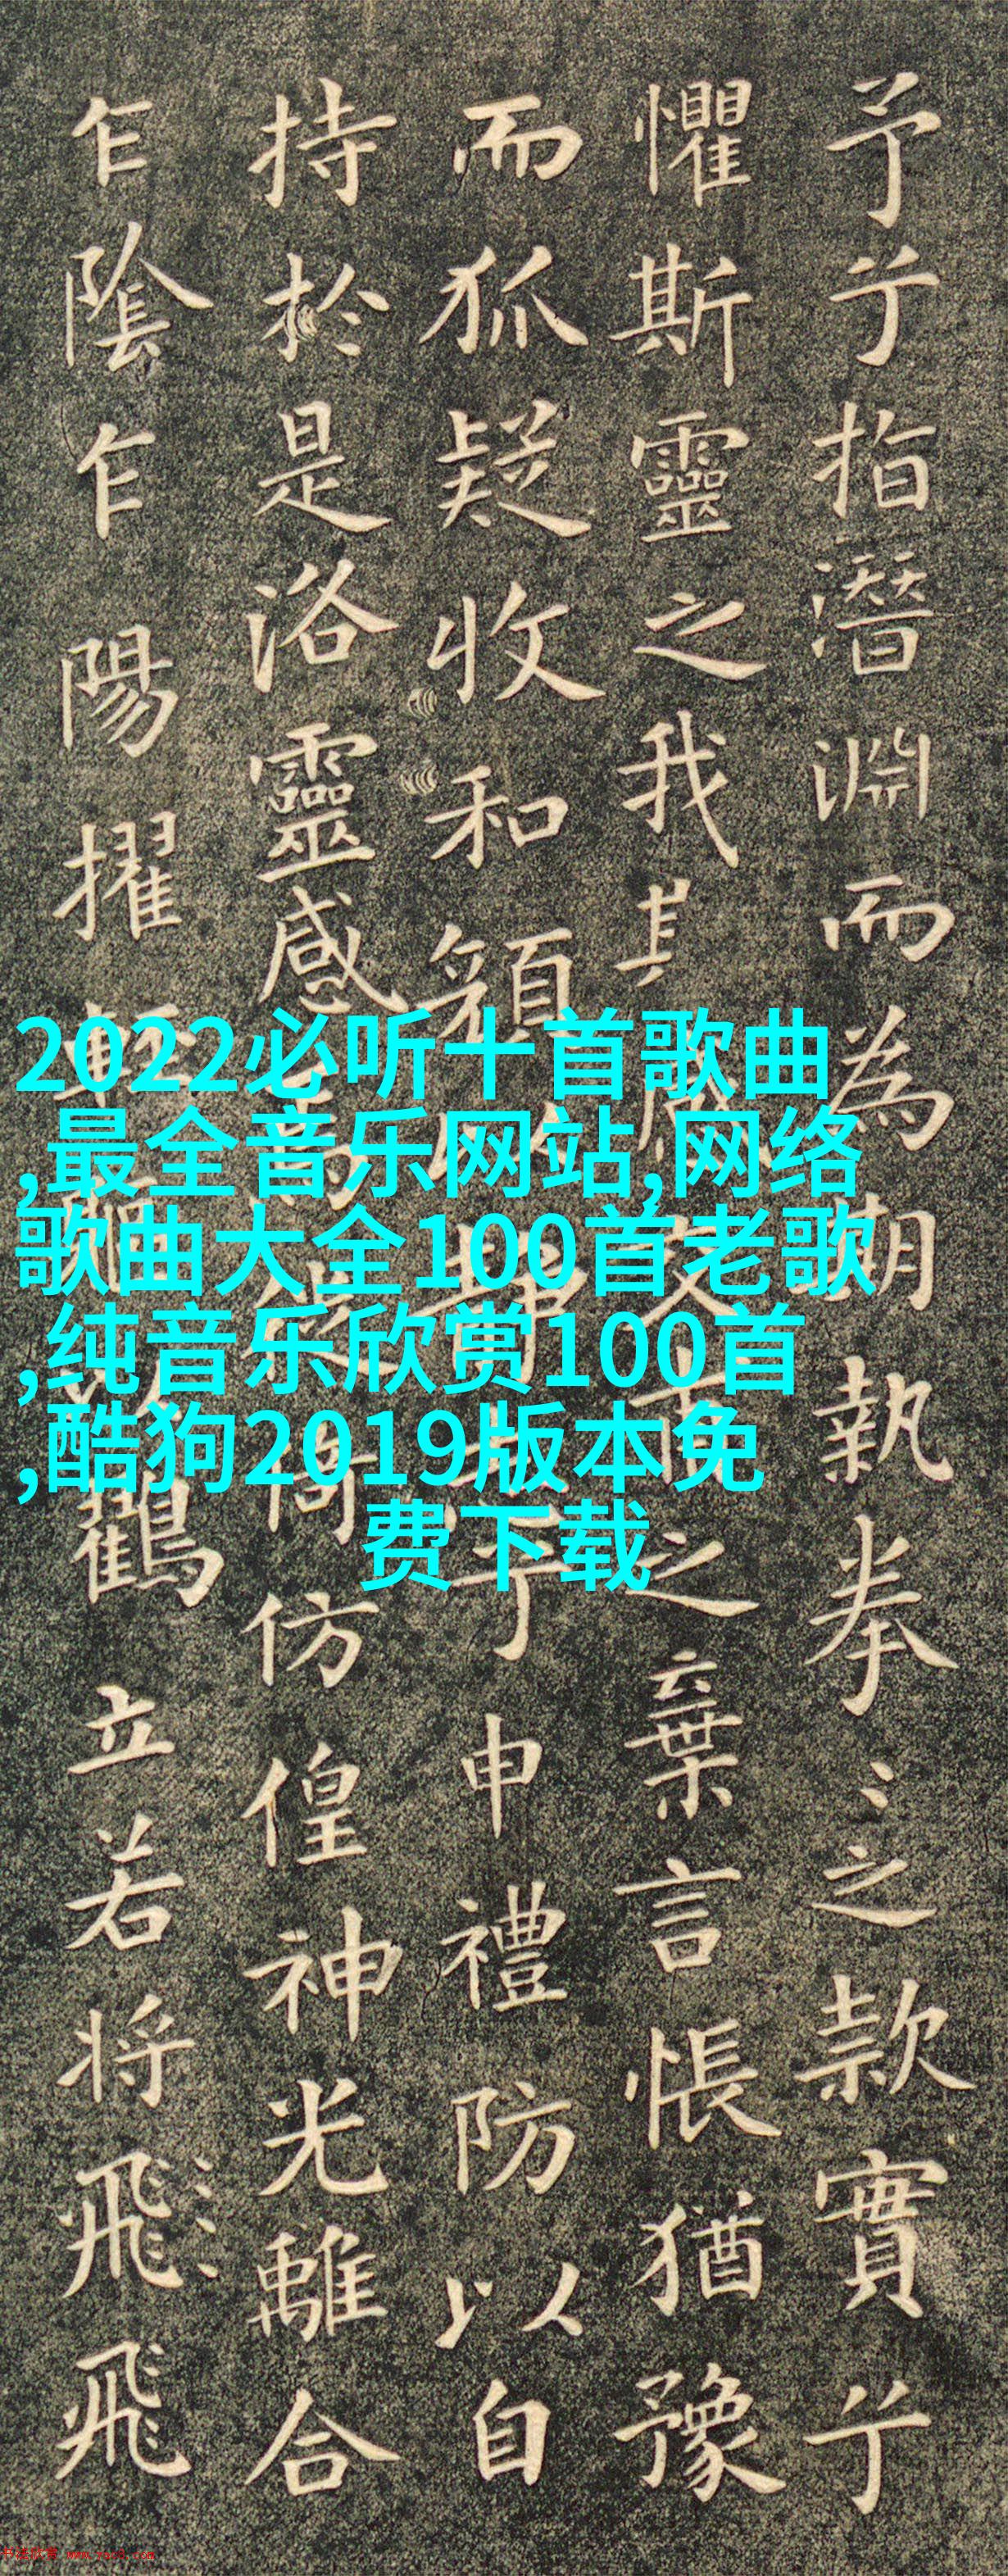 予兮指潛淵而為期執拳〻之款實兮
懼斯靈之我甫之棄言悵猶豫
而狐疑收和顏兮申禮防以自
持於是洛靈感焉徙倚仿偟神光離合
乍陰乍陽擢輕軀以鶴立若將飛飛
2022必听十首歌曲
,最全音乐网站,网络
歌曲大全100首老歌
,纯音乐欣赏100首
,酷狗2019版本免
费下载